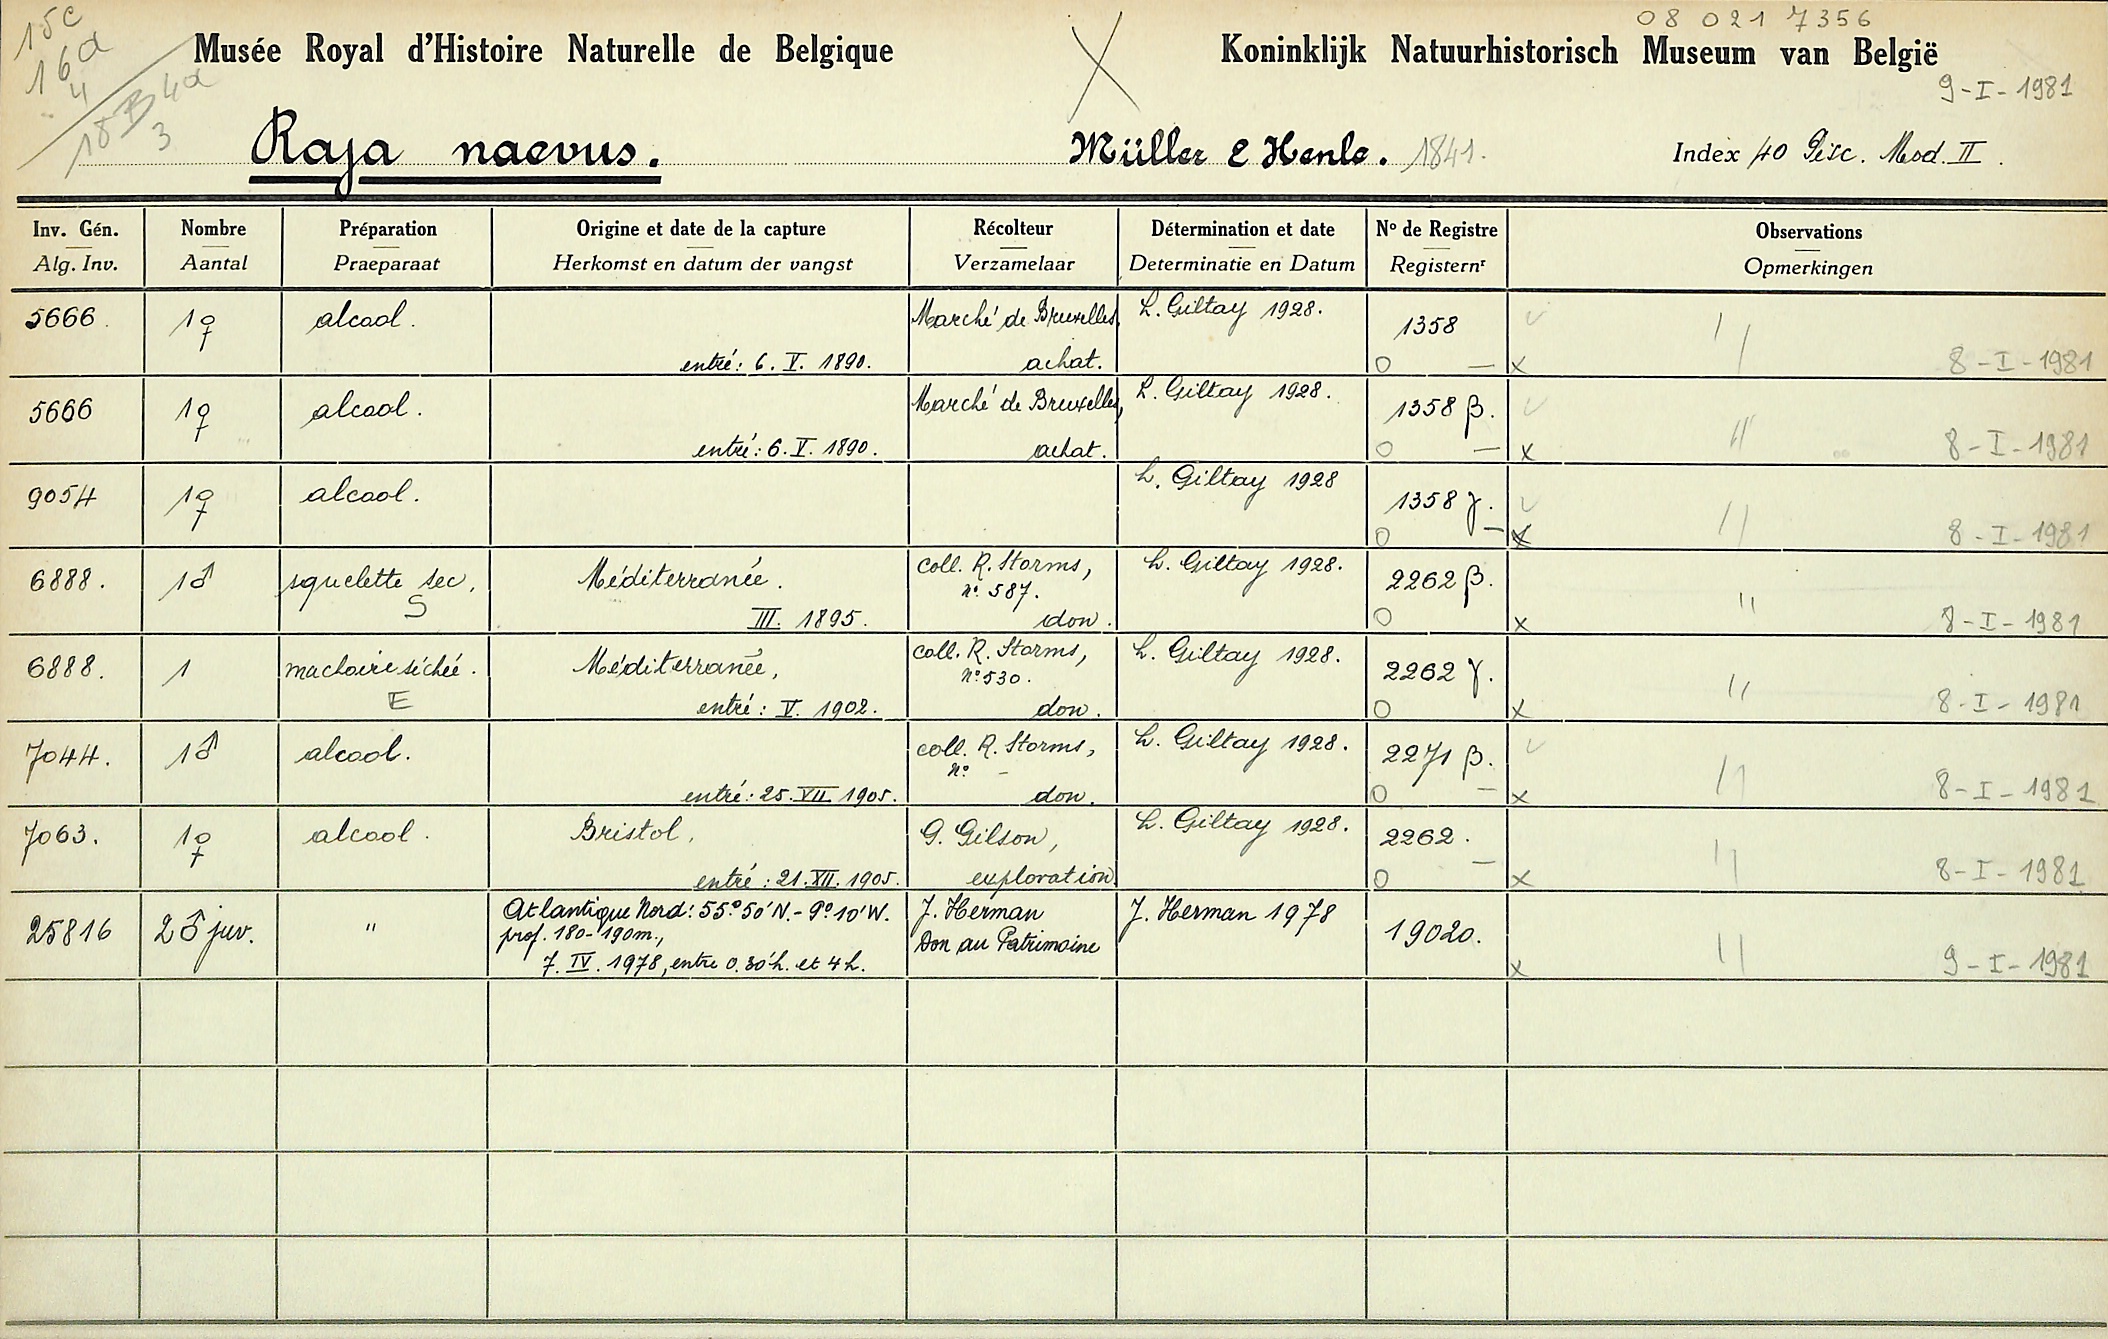 08 021 7356
15c
16a
4
18 B 4a
3
Musée Royal d'Histoire Naturelle de Belgique
Koninklijk Natuurhistorisch Museum van België
9-I-1981
Raja naevus. Müller & Henle. 1841. Index 40 Pisc. Mod. II.
Inv. Gén. Nombre Préparation Origine et date de la capture Récolteur Détermination et date N° de Registre Observations
Alg. Inv. Aantal Praeparaat Herkomst en datum der vangst Verzamelaar Determinatie en Datum Registernr Opmerkingen
5666. 1♀ alcool. Marché de Bruxelles, L. Giltay 1928. 1358 //
entré: 6. V. 1890. achat. O — x 8-I-1981
5666 1♀ alcool. Marché de Bruxelles, L. Giltay 1928. 1358 β. //
entré: 6. V. 1890. achat. O — x 8-I-1981
9054 1♀ alcool. L. Giltay 1928 1358 γ. //
O — x 8-I-1981
6888. 1♂ squelette sec, Méditerranée. coll. R. Storms, L. Giltay 1928. 2262 β. //
S n° 587.
III. 1895. don. O x 8-I-1981
6888. 1 machoire séchée. Méditerranée, coll. R. Storms, L. Giltay 1928. 2262 γ. //
E n° 530.
entré: V. 1902. don. O x 8-I-1981
7044. 1♂ alcool. coll. R. Storms, L. Giltay 1928. 2271 β. //
n° -
entré: 25. VII. 1905. don. O — x 8-I-1981
7063. 1♀ alcool. Bristol, G. Gilson, L. Giltay 1928. 2262. //
entré: 21. XII. 1905. exploration. O — x 8-I-1981
25816 2♂ juv. " Atlantique Nord: 55°50'N.- 9°10'W. J. Herman J. Herman 1978 19020. //
prof. 180-190m., Don au Patrimoine
7. IV. 1978, entre 0.30'h. et 4h. x 9-I-1981